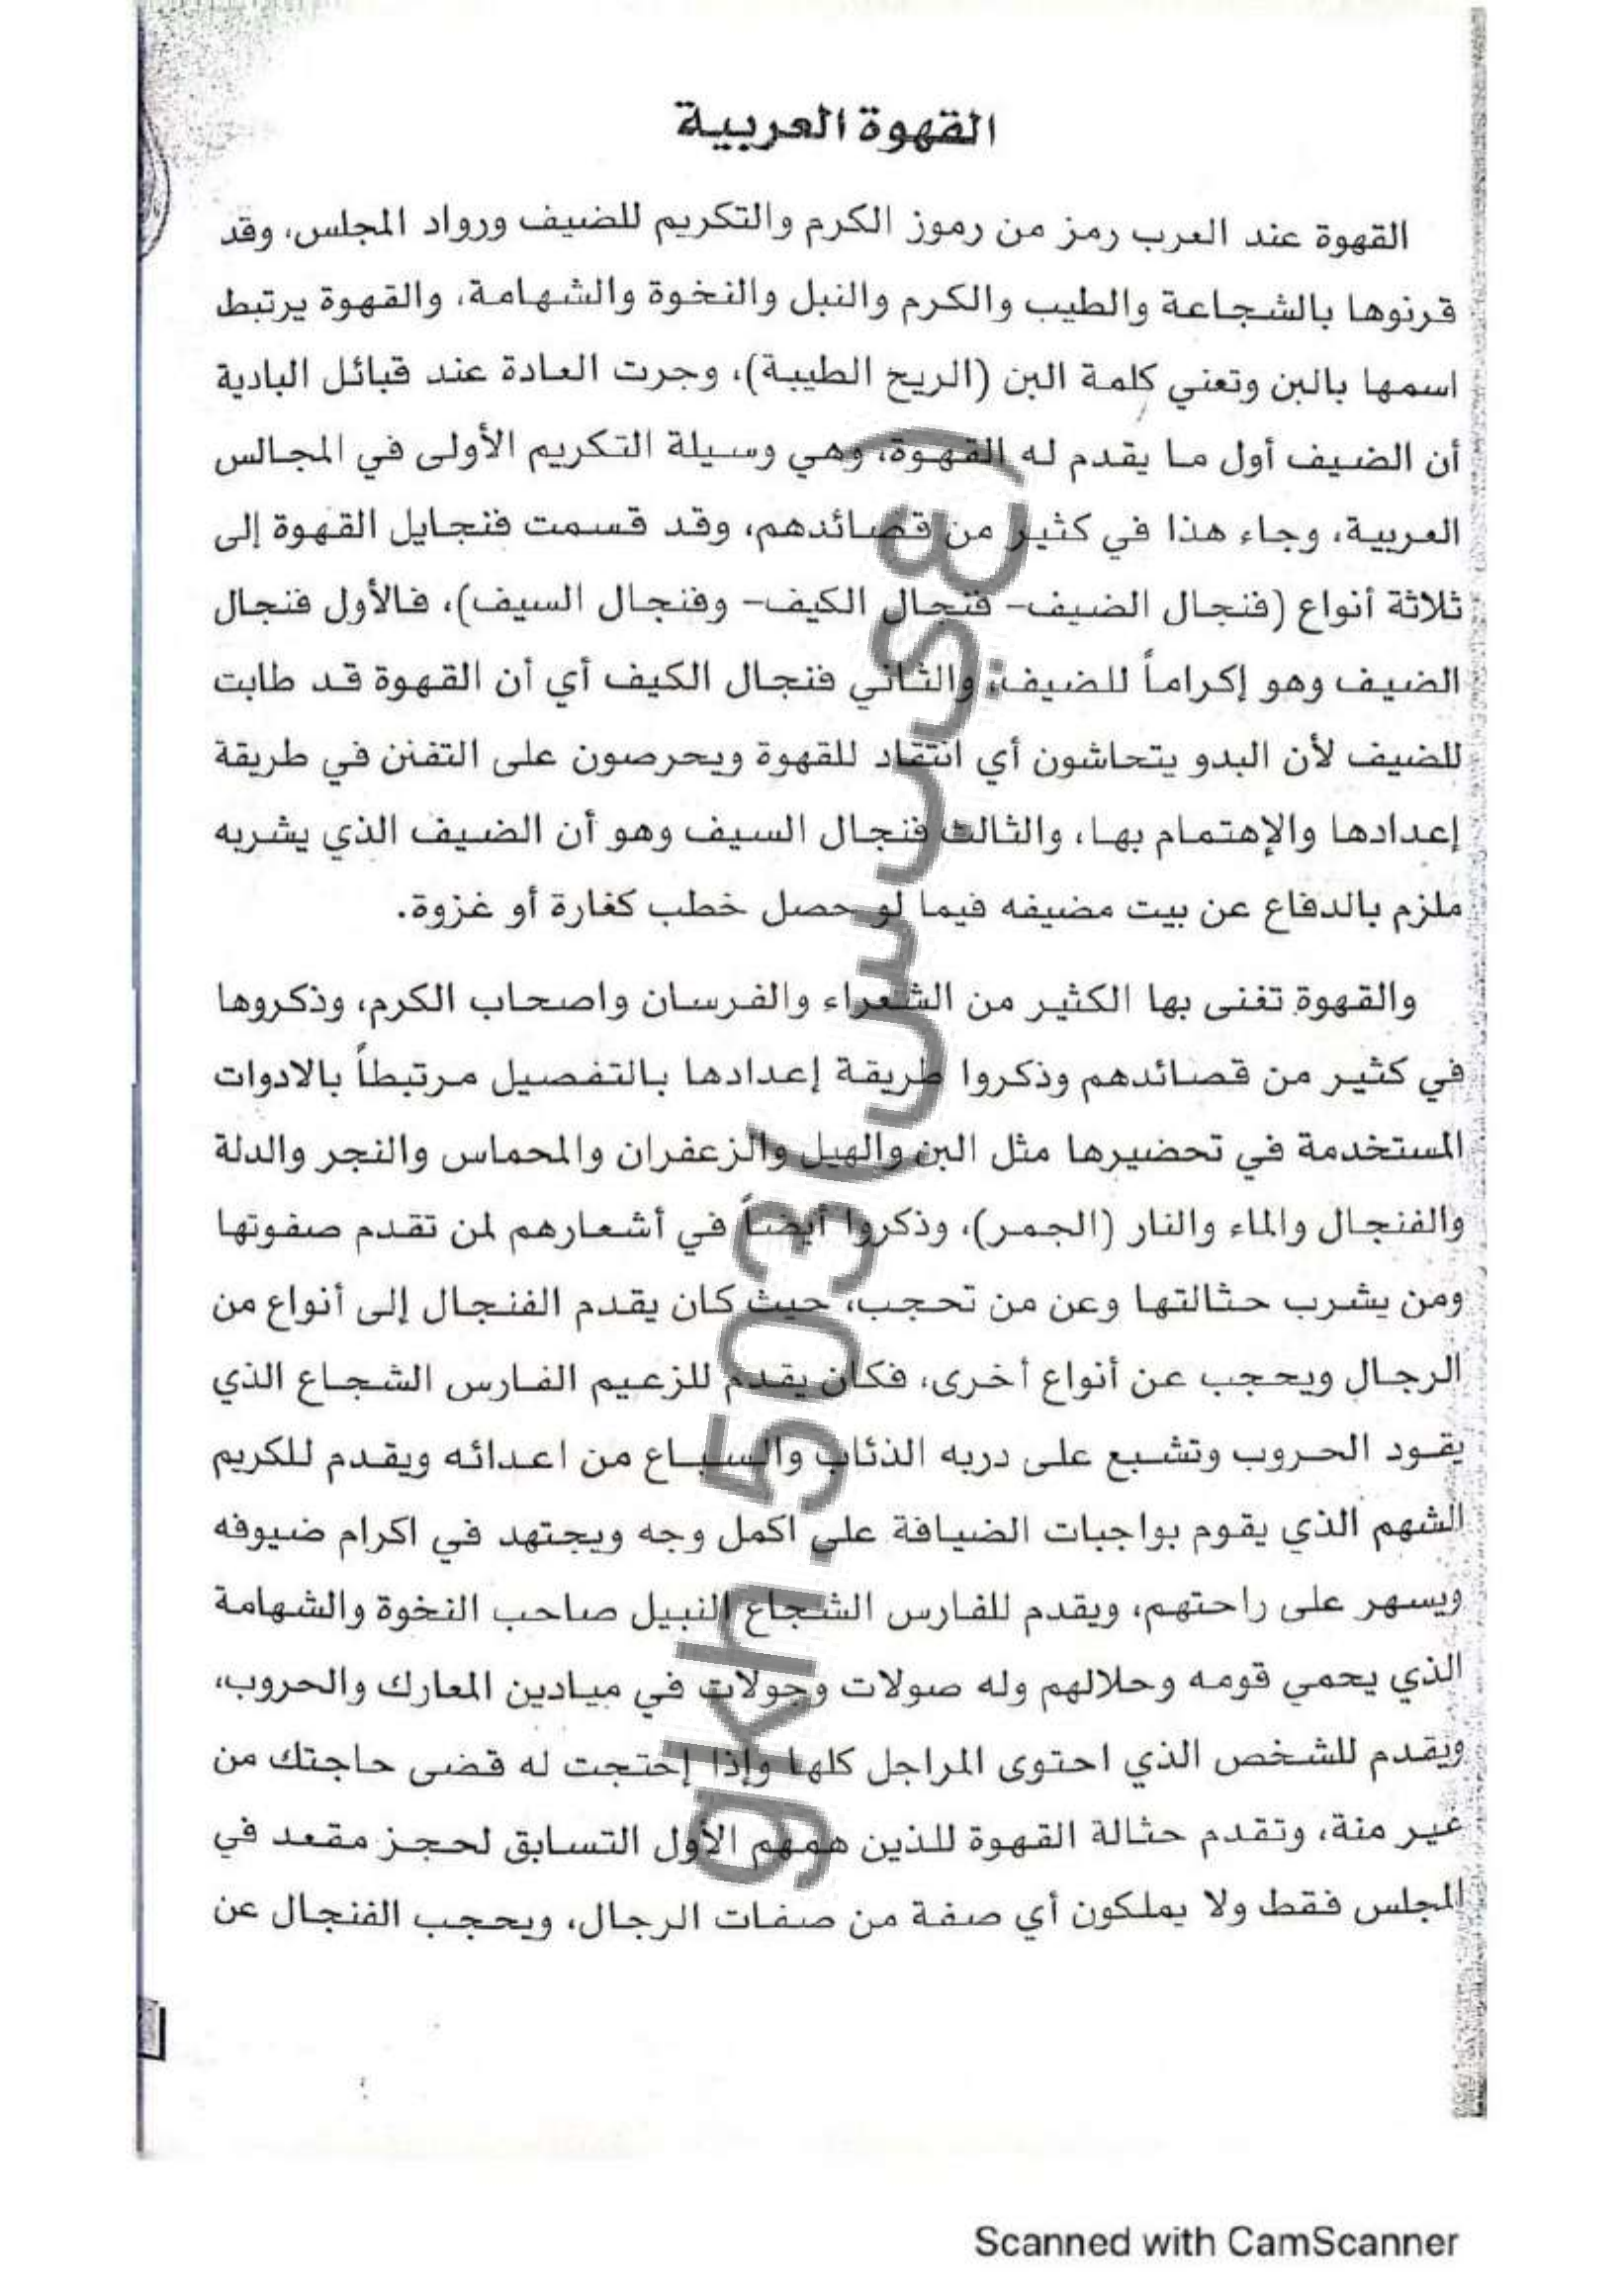 القهوة العربية
القهوة عند العرب رمز من رموز الكرم والتكريم للضيف ورواد المجلس، وقد
قرنوها بالشجاعة والطيب والكرم والنبل والنخوة والشهامة، والقهوة يرتبط
اسمها بالبن وتعني كلمة البن (الريح الطيبة)، وجرت العادة عند قبائل البادية
أن الضيف أول ما يقدم له القهوة، وهي وسيلة التكريم الأولى في المجالس
العربية، وجاء هذا في كثير من قصائدهم، وقد قسمت فنجايل القهوة إلى
ثلاثة أنواع (فنجال الضيف- فنجال الكيف- وفنجال السيف)، فالأول فنجال
الضيف وهو إكراماً للضيف، والثاني فنجال الكيف أي أن القهوة قد طابت
للضيف لأن البدو يتحاشون أي انتقاد للقهوة ويحرصون على التفنن في طريقة
إعدادها والإهتمام بها، والثالث فنجال السيف وهو أن الضيف الذي يشربه
ملزم بالدفاع عن بيت مضيفه فيما لو حصل خطب كغارة أو غزوة.
والقهوة تغنى بها الكثير من الشعراء والفرسان واصحاب الكرم، وذكروها
في كثير من قصائدهم وذكروا طريقة إعدادها بالتفصيل مرتبطاً بالادوات
المستخدمة في تحضيرها مثل البن والهيل والزعفران والمحماس والنجر والدلة
والفنجال والماء والنار (الجمر)، وذكروا أيضاً في أشعارهم لمن تقدم صفوتها
ومن يشرب حثالتها وعن من تحجب، حيث كان يقدم الفنجال إلى أنواع من
الرجال ويحجب عن أنواع أخرى، فكان يقدم للزعيم الفارس الشجاع الذي
يقود الحروب وتشبع على دربه الذئاب والسباع من اعدائه ويقدم للكريم
الشهم الذي يقوم بواجبات الضيافة على اكمل وجه ويجتهد في اكرام ضيوفه
ويسهر على راحتهم، ويقدم للفارس الشجاع النبيل صاحب النخوة والشهامة
الذي يحمي قومه وحلالهم وله صولات وجولات في ميادين المعارك والحروب،
ويقدم للشخص الذي احتوى المراجل كلها وإذا إحتجت له قضى حاجتك من
غير منة، وتقدم حثالة القهوة للذين همهم الأول التسابق لحجز مقعد في
المجلس فقط ولا يملكون أي صفة من صفات الرجال، ويحجب الفنجال عن
Scanned with CamScanner